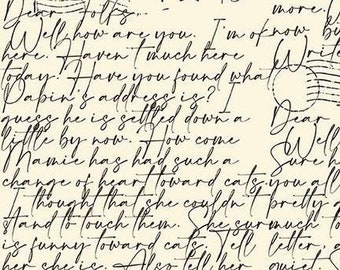 Dear Folks.
Well how are you. I'm of now by
here. Haven't much here
today. Have you found what
Papin's address is? I
guess he is settled down a
little by now. How come
Mamie has had such a
change of heart toward cats. you all
I though that she couldn't pretty g
stand to touch them. She surmuch to
is funny toward cats. Tell letter. g
her she is. Also tell her quiet
more. l
Write
Dear
Well
Sure h